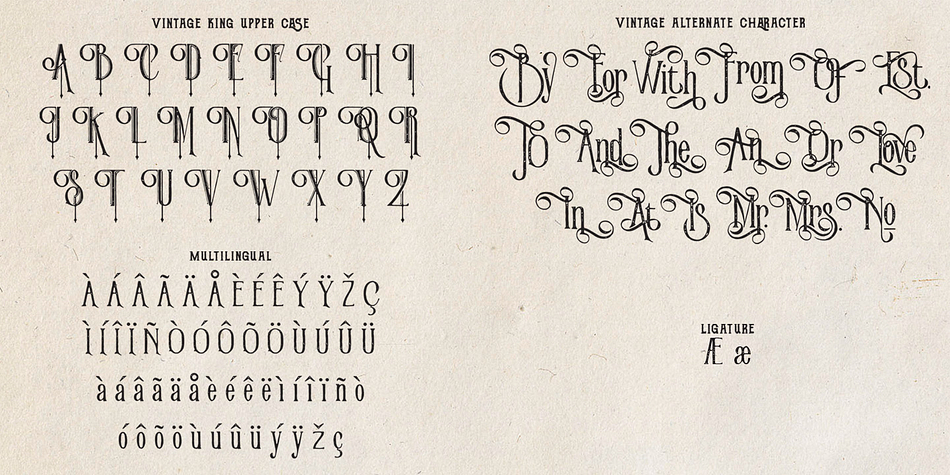 VINTAGE KING UPPER CASE
A B C D E F G H I
J K L M N O P Q R
S T U V W X Y Z
MULTILINGUAL
À Á Â Ã Ä Å È É Ê Ý Ÿ Ž Ç
Ì Í Î Ï Ñ Ò Ó Ô Õ Ö Ù Ú Û Ü
à á â ã ä å è é ê ë ì í î ï ñ ò
ó ô õ ö ù ú û ü ý ÿ ž ç
VINTAGE ALTERNATE CHARACTER
By For With From Of Est.
To And The An Or Love
In At Is Mr. Mrs. No
LIGATURE
Æ æ